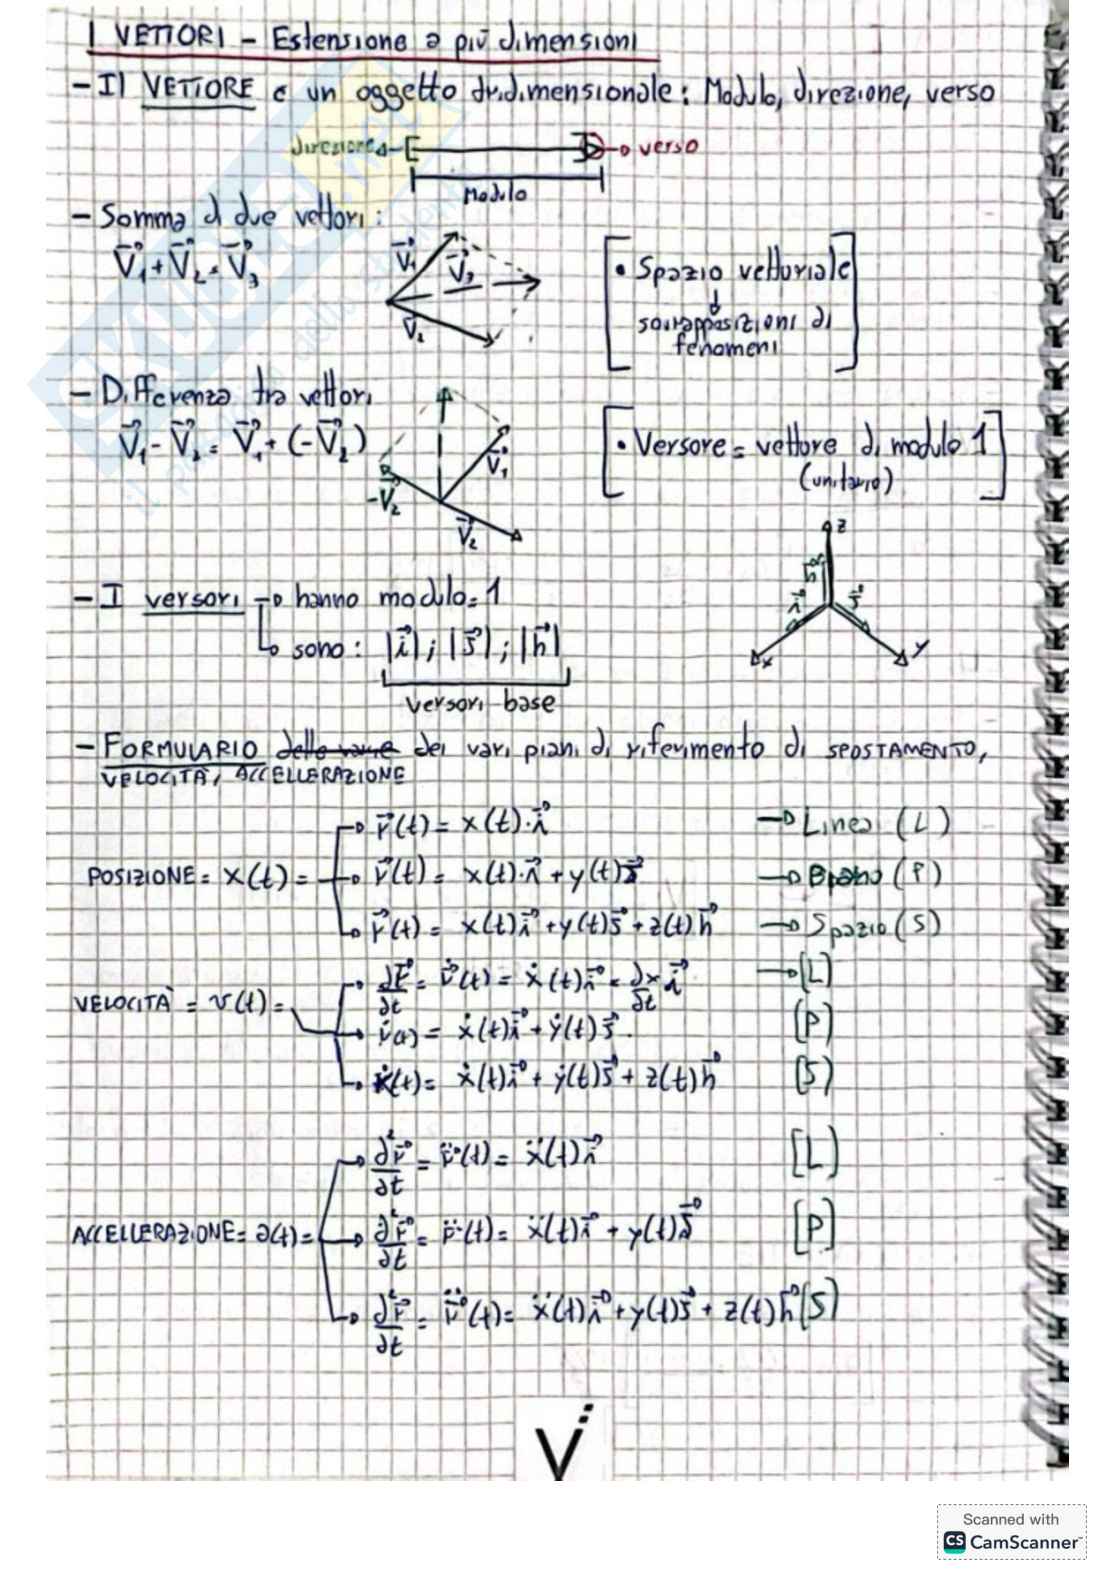 I VETTORI - Estensione a più dimensioni
- Il VETTORE e un oggetto tridimensionale: Modulo, direzione, verso
direzione
verso
Modulo
- Somma di due vettori:
V⃗1 + V⃗2 = V⃗3
V⃗1
V⃗3
V⃗2
• Spazio vettoriale
↓
sovrapposizioni di
fenomeni
- Differenza tra vettori
V⃗1 - V⃗2 = V⃗1 + (-V⃗2)
V⃗1
-V⃗2
V⃗2
• Versore = vettore di modulo 1
(unitario)
z
h⃗
i⃗
j⃗
x
y
- I versori → hanno modulo = 1
↳ sono: |i⃗|; |j⃗|; |h⃗|
versori base
- FORMULARIO dei vari piani di riferimento di SPOSTAMENTO,
VELOCITÀ, ACCELLERAZIONE
r⃗(t) = x(t)·i⃗ → Linea (L)
POSIZIONE = x(t) = r⃗(t) = x(t)·i⃗ + y(t)j⃗ → Piano (P)
r⃗(t) = x(t)i⃗ + y(t)j⃗ + z(t)h⃗ → Spazio (S)
∂r⃗/∂t = ṙ⃗(t) = ẋ(t)i⃗ = ∂x/∂t i⃗ → [L]
VELOCITÀ = v(t) =
ṙ(t) = ẋ(t)i⃗ + ẏ(t)j⃗. [P]
ṙ(t) = ẋ(t)i⃗ + ẏ(t)j⃗ + z(t)h⃗ [S]
∂²r⃗/∂t = r̈⃗(t) = ẍ(t)i⃗ [L]
ACCELLERAZIONE = a(t) = ∂²r⃗/∂t = r̈(t) = ẍ(t)i⃗ + y(t)j⃗ [P]
∂²r⃗/∂t = r̈⃗(t) = ẍ(t)i⃗ + y(t)j⃗ + z(t)h⃗ [S]
Scanned with
CS CamScanner